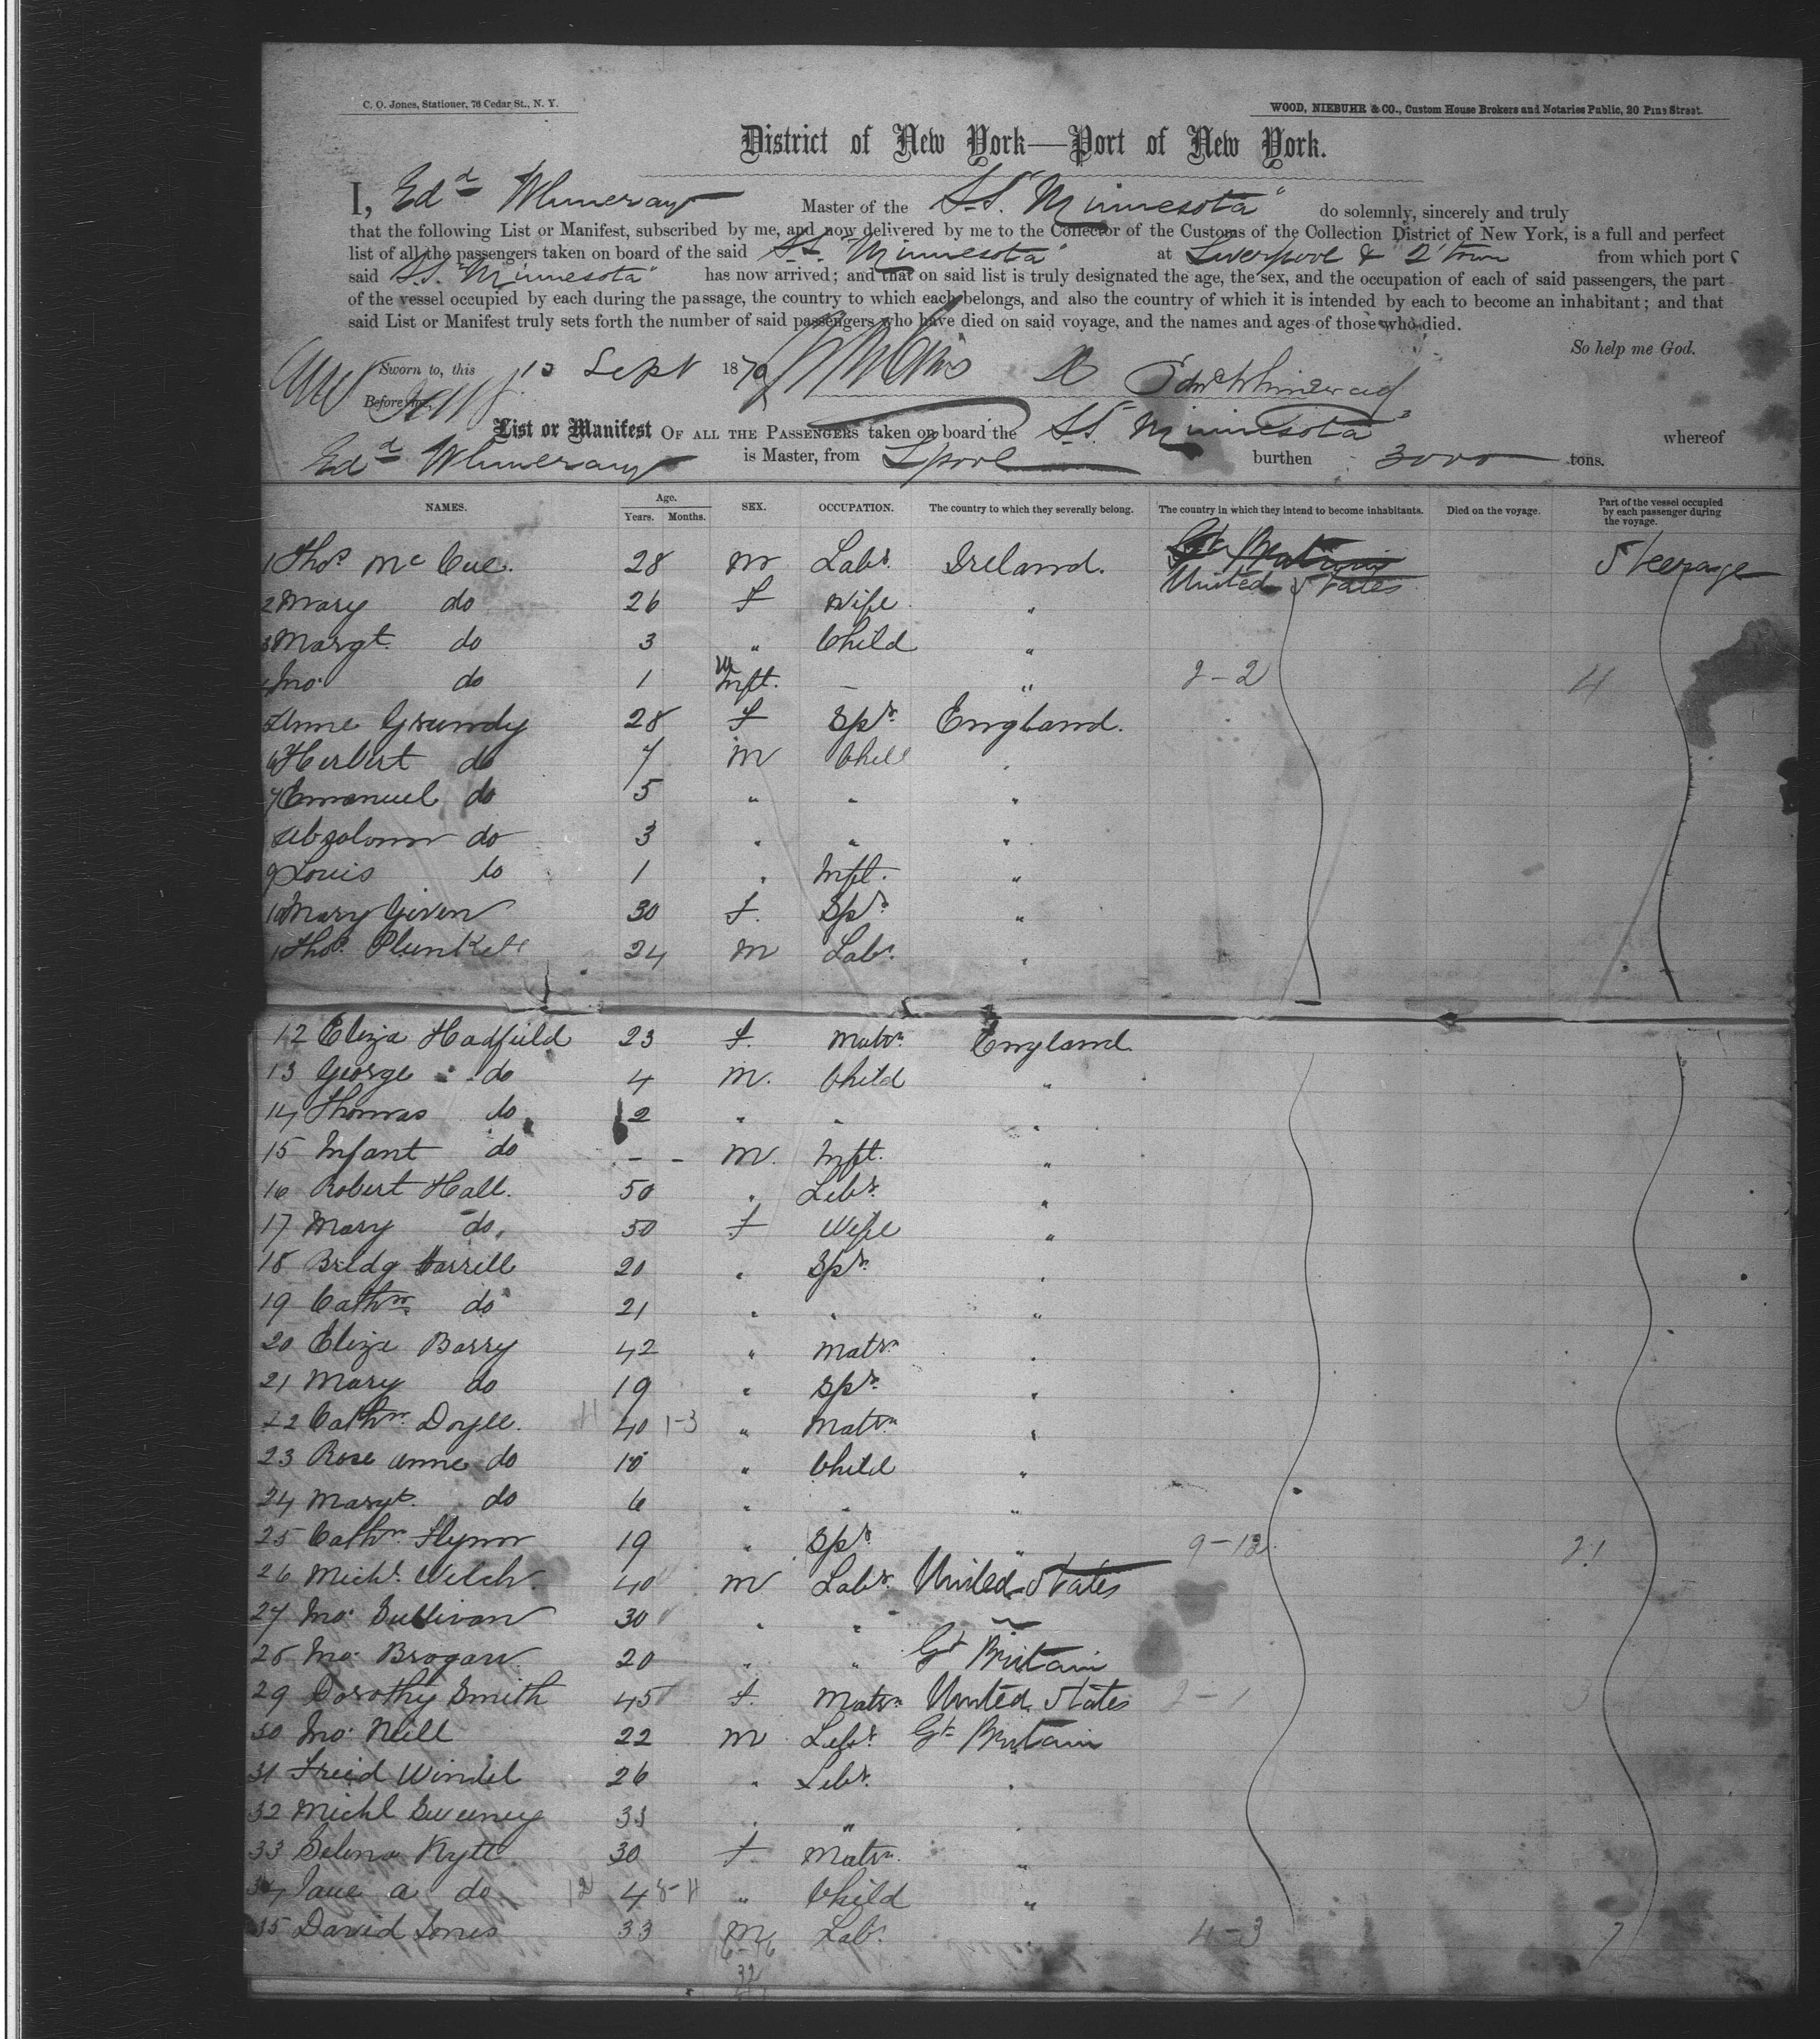 C. O. Jones, Stationer, 76 Cedar St., N. Y.
WOOD, NIEBUHR & CO., Custom House Brokers and Notaries Public, 20 Pine Street.
District of New York—Port of New York.
I, Edd Whineray Master of the S.S. "Minnesota" do solemnly, sincerely and truly
that the following List or Manifest, subscribed by me, and now delivered by me to the Collector of the Customs of the Collection District of New York, is a full and perfect
list of all the passengers taken on board of the said S.S. "Minnesota" at Liverpool & Q'town from which port
said S.S. "Minnesota" has now arrived; and that on said list is truly designated the age, the sex, and the occupation of each of said passengers, the part
of the vessel occupied by each during the passage, the country to which each belongs, and also the country of which it is intended by each to become an inhabitant; and that
said List or Manifest truly sets forth the number of said passengers who have died on said voyage, and the names and ages of those who died.
So help me God.
Sworn to, this Sept 1879 Edwd Whineray
Before me,
List or Manifest OF ALL THE PASSENGERS taken on board the S.S. "Minnesota" whereof
Edd Whineray is Master, from L'pool burthen 3000 tons.
NAMES. Age. Years. Months. SEX. OCCUPATION. The country to which they severally belong. The country in which they intend to become inhabitants. Died on the voyage. Part of the vessel occupied by each passenger during the voyage.
1 Thos. McCue. 28 m Labr. Ireland. Gt Britain United States Steerage
2 Mary do 26 f Wife "
3 Margt. do 3 " Child "
4 Jno. do 1 m Inft. – " 2–2 4
5 Anne Grundy 28 f Spr. England.
6 Herbert do 7 m Child "
7 Emanuel do 5 " " "
8 Abzolom do 3 " " "
9 Louis do 1 " Inft. "
10 Mary Given 30 f. Spr. "
11 Thos. Plunkett 24 m Labr. "
12 Eliza Hadfield 23 f. Matrn. England
13 George do 4 m. Child "
14 Thomas do 2 " " "
15 Infant do – – m. Inft. "
16 Robert Hall. 50 " Labr. "
17 Mary do. 50 f Wife "
18 Bridg 20 " Spr. "
19 Cathn. do 21 " " "
20 Eliza Barry 42 " Matrn. "
21 Mary do 19 " Spr. "
22 Cathn. Doyle. 11 40 1–3 " Matrn. "
23 Rose Anne do 10 " Child "
24 Margt. do 6 " " "
25 Cathn. Flynn 19 " Spr. " 9–12 21
26 Michl. Welch. 40 m Labr. United States
27 Jno. Sullivan 30 " " "
28 Jno. Brogan 20 " " Gt Britain
29 Dorothy Smith 45 f. Matrn. United States 2–1 3
30 Jno. Neill 22 m Labr. Gt Britain
31 Fried Windel 26 " Labr. "
32 Michl Sweeney 33 " " "
33 Selina Kyte 30 f Matrn. "
34 Jane A do 12 4 8–11 " Child "
35 David Jones 33 m Lab. " 4–3 7
16–16
32